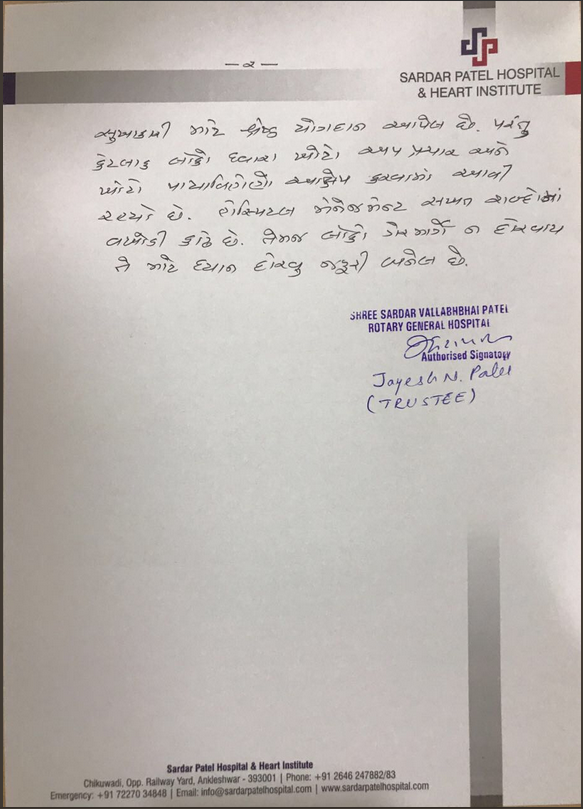 — ૨ —
SARDAR PATEL HOSPITAL
& HEART INSTITUTE
સુખાકારી માટે શ્રેષ્ઠ યોગદાન આપેલ છે. પરંતુ
કેટલાક લોકો દ્વારા ખોટો અપ પ્રચાર અને
ખોટો પાયાવિહોણો આક્ષેપ કરવામાં આવી
રહયો છે. હોસ્પિટલ મેનેજમેન્ટ સખત શબ્દોમાં
વખોડી કાઢે છે. તેમજ લોકો ગેરમાર્ગે ન દોરવાય
તે માટે ધ્યાન દોરવુ જરૂરી બનેલ છે.
SHREE SARDAR VALLABHBHAI PATEL
ROTARY GENERAL HOSPITAL
Authorised Signatory
Jayesh N. Patel
(TRUSTEE)
Sardar Patel Hospital & Heart Institute
Chikuwadi, Opp. Railway Yard, Ankleshwar - 393001 | Phone: +91 2646 247882/83
Emergency: +91 72270 34848 | Email: info@sardarpatelhospital.com | www.sardarpatelhospital.com